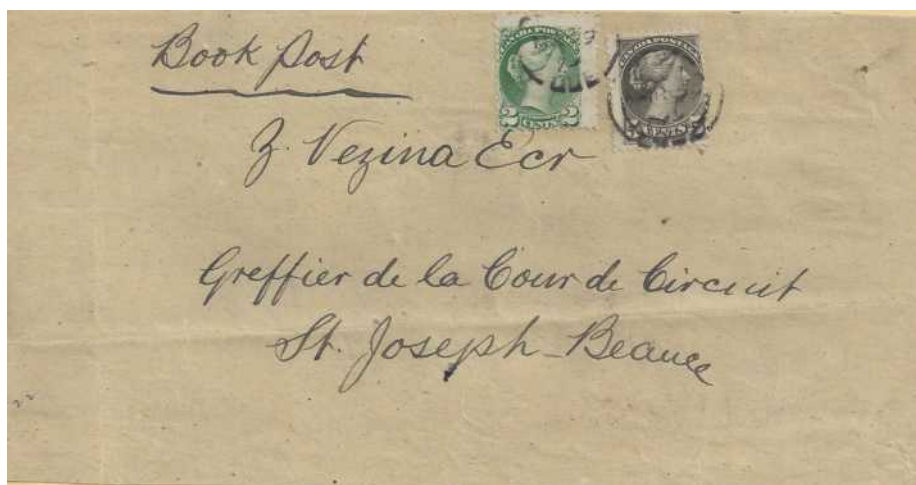 Book Post
CANADA POSTAGE
2 CENTS 2
CANADA POSTAGE
CENTS
QUE
Z. Vezina Ecr
Greffier de la Cour de Circuit
St. Joseph Beauce